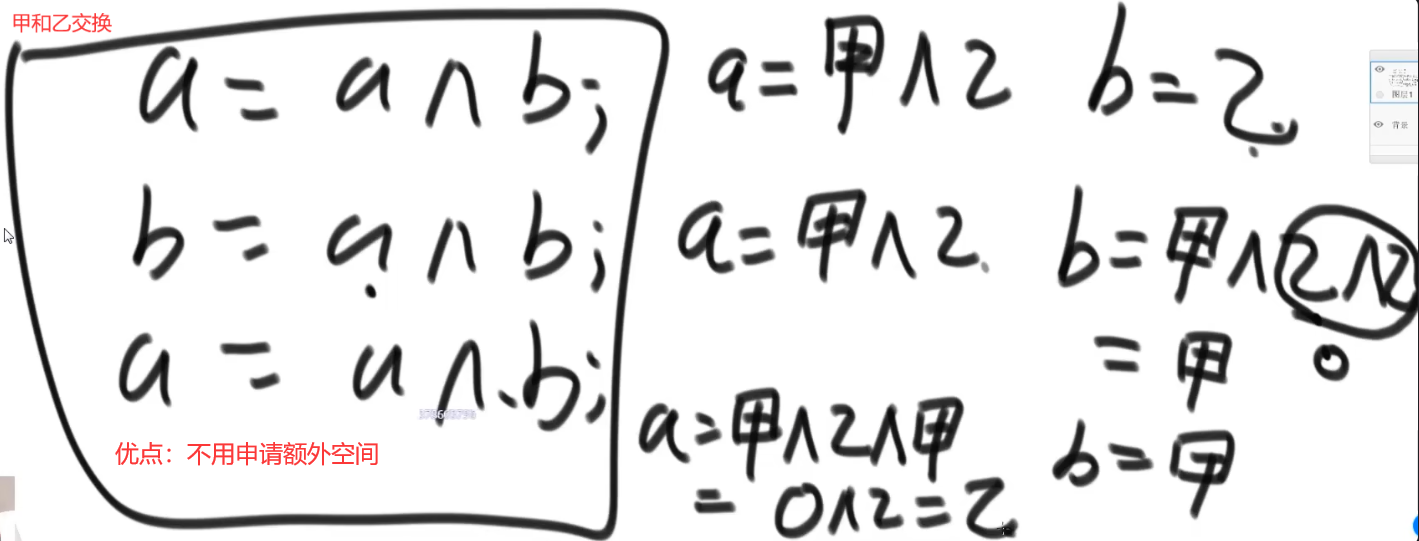 甲和乙交换
a = a ∧ b;
b = a ∧ b;
a = a ∧ b;
优点：不用申请额外空间
a = 甲 ∧ 乙 b = 乙
a = 甲 ∧ 乙 b = 甲 ∧ 乙 ∧ 乙
0
= 甲
a = 甲 ∧ 乙 ∧ 甲 b = 甲
= 0 ∧ 乙 = 乙
图层1
背景